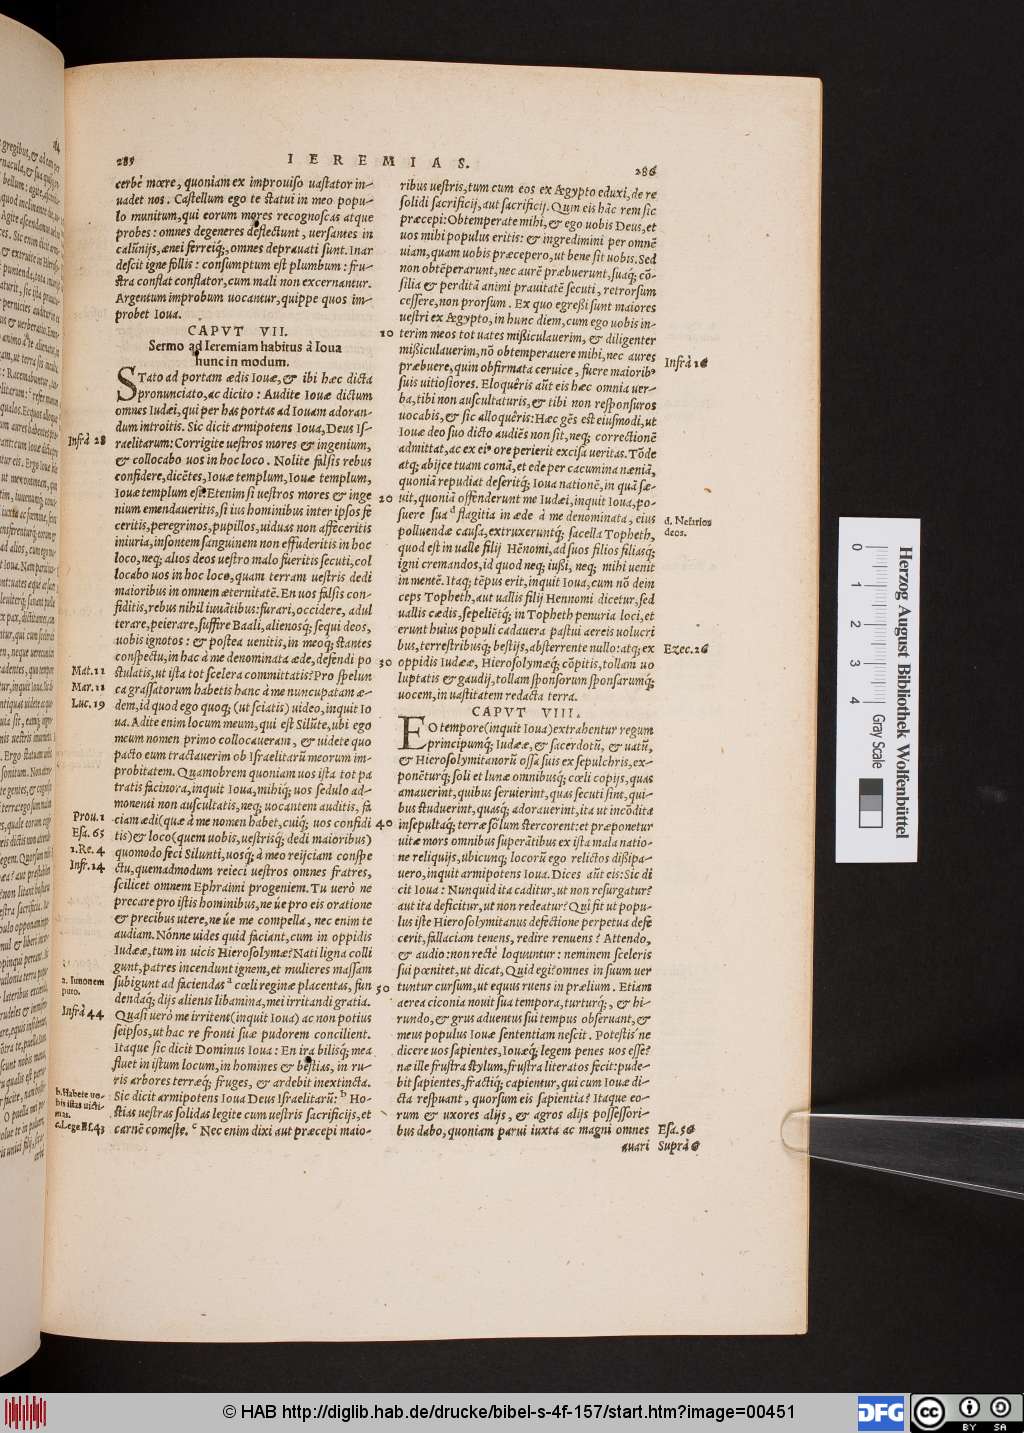 285
I E R E M I A S.
286
cerbè mœre, quoniam ex improuiso uastator in-
uadet nos. Castellum ego te statui in meo popu-
lo munitum, qui eorum mores recognoscas atque
probes: omnes degeneres deflectunt, uersantes in
calũnijs, ænei ferreiq́;, omnes deprauati sunt. Inar
descit igne follis: consumptum est plumbum: fru-
stra conflat conflator, cum mali non excernantur.
Argentum improbum uocantur, quippe quos im-
probet Ioua.
CAPVT VII.
Sermo ad Ieremiam habitus à Ioua
hunc in modum.
STato ad portam ædis Iouæ, & ibi hæc dicta
pronunciato, ac dicito: Audite Iouæ dictum
omnes Iudæi, qui per has portas ad Iouam adoran-
dum introitis. Sic dicit armipotens Ioua, Deus Is-
Infrà 28
raelitarum: Corrigite uestros mores & ingenium,
& collocabo uos in hoc loco. Nolite falsis rebus
confidere, dicẽtes, Iouæ templum, Iouæ templum,
Iouæ templum est. Etenim si uestros mores & inge
nium emendaueritis, si ius hominibus inter ipsos fe
ceritis, peregrinos, pupillos, uiduas non affeceritis
iniuria, insontem sanguinem non effuderitis in hoc
loco, neq; alios deos uestro malo fueritis secuti, col
locabo uos in hoc loco, quam terram uestris dedi
maioribus in omnem æternitatẽ. En uos falsis con-
fiditis, rebus nihil iuuãtibus: furari, occidere, adul
terare, peierare, suffire Baali, alienosq́; sequi deos,
uobis ignotos: & postea uenitis, in meoq; stantes
conspectu, in hac à me denominata æde, defendi po
Mat. 21
stulatis, ut ista tot scelera committatis? Pro spelun
Mar. 11
ca grassatorum habetis hanc à me nuncupatam æ-
Luc. 19
dem, id quod ego quoq; (ut sciatis) uideo, inquit Io
ua. Adite enim locum meum, qui est Silũte, ubi ego
meum nomen primo collocaueram, & uidete quo
pacto eum tractauerim ob Israelitarũ meorum im-
probitatem. Quamobrem quoniam uos ista tot pa
tratis facinora, inquit Ioua, mihiq; uos sedulo ad-
monenti non auscultatis, neq; uocantem auditis, fa
Prou. 1
ciam ædi (quæ à me nomen habet, cuiq; uos confidi
Esa. 65
tis) & loco (quem uobis, uestrisq; dedi maioribus)
1. Re. 4
quomodo feci Silunti, uosq́; à me reijciam conspe
Infr. 24
ctu, quemadmodum reieci uestros omnes fratres,
scilicet omnem Ephraimi progeniem. Tu uerò ne
precare pro istis hominibus, ne ùe pro eis oratione
& precibus utere, ne ùe me compella, nec enim te
audiam. Nónne uides quid faciant, cum in oppidis
Iudææ, tum in uicis Hierosolymæ? Nati ligna colli
gunt, patres incendunt ignem, et mulieres massam
a. Iunonem
puto.
subigunt ad faciendas a cœli reginæ placentas, fun
dendaq; dijs alienis libamina, mei irritandi gratia.
Infrà 44
Quasi uerò me irritent (inquit Ioua) ac non potius
seipsos, ut hac re fronti suæ pudorem concilient.
Itaque sic dicit Dominus Ioua: En ira bilisq́; mea
fluet in istum locum, in homines & bestias, in ru-
ris arbores terræq; fruges, & ardebit inextincta.
b. Habete uo-
bis istas uicti-
mas.
Sic dicit armipotens Ioua Deus Israelitarũ: b Ho-
stias uestras solidas legite cum uestris sacrificijs, et
c. Lege Ps. 43
carnẽ comeste. c Nec enim dixi aut præcepi maio-
ribus uestris, tum cum eos ex Ægypto eduxi, de re
solidi sacrificij, aut sacrificij. Qum eis hãc rem sic
præcepi: Obtemperate mihi, & ego uobis Deus, et
uos mihi populus eritis: & ingredimini per omnẽ
uiam, quam uobis præcepero, ut bene sit uobis. Sed
non obtẽperarunt, nec aurẽ præbuerunt, suaq; cõ-
silia & perditã animi prauitatẽ secuti, retrorsum
cessere, non prorsum. Ex quo egressi sunt maiores
uestri ex Ægypto, in hunc diem, cum ego uobis in-
10 terim meos tot uates missiculauerim, & diligenter
missiculauerim, nõ obtemperauere mihi, nec aures
præbuere, quin obfirmata ceruice, fuere maioribꝰ
Infrà 16
suis uitiosiores. Eloquêris aũt eis hæc omnia uer-
ba, tibi non auscultaturis, & tibi non responsuros
uocabis, & sic alloquêris: Hæc gẽs est eiusmodi, ut
Iouæ deo suo dicto audiẽs non sit, neq; correctionẽ
admittat, ac ex eiꝰ ore perierit excisa ueritas. Tõde
atq; abijce tuam comã, et ede per cacumina næniã,
quoniã repudiat deseritq́; Ioua nationẽ, in quã sæ-
20 uit, quoniã offenderunt me Iudæi, inquit Ioua, po-
suere sua d flagitia in æde à me denominata, eius
d. Nefarios
deos.
polluendæ causa, extruxeruntq́; sacella Topheth,
quod est in ualle filij Hẽnomi, ad suos filios filiasq́;
igni cremandos, id quod neq; iussi, neq; mihi uenit
in mentẽ. Itaq; tẽpus erit, inquit Ioua, cum nõ dein
ceps Topheth, aut uallis filij Hennomi dicetur, sed
uallis cædis, sepeliẽtq́; in Topheth penuria loci, et
erunt huius populi cadauera pastui aereis uolucri
bus, terrestribusq́; bestijs, absterrente nullo: atq; ex
Ezec. 26
30 oppidis Iudææ, Hierosolymæq; cõpitis, tollam uo
luptatis & gaudij, tollam sponsorum sponsarumq́;
uocem, in uastitatem redacta terra.
CAPVT VIII.
EO tempore (inquit Ioua) extrahentur regum
principumq́; Iudææ, & sacerdotũ, & uatũ,
& Hierosolymitanorũ ossa suis ex sepulchris, ex-
ponẽturq́; soli et lunæ omnibusq́; cœli copijs, quas
amauerint, quibus seruierint, quas secuti sint, qui-
bus studuerint, quasq́; adorauerint, ita ut incõdita
40 insepultaq́; terræ solum stercorent: et præponetur
uitæ mors omnibus superãtibus ex ista mala natio-
ne reliquijs, ubicunq; locorũ ego relictos dissipa-
uero, inquit armipotens Ioua. Dices aũt eis: Sic di
cit Ioua: Nunquid ita caditur, ut non resurgatur?
aut ita deficitur, ut non redeatur? Qui fit ut popu-
lus iste Hierosolymitanus defectione perpetua defe
cerit, fallaciam tenens, redire renuens? Attendo,
& audio: non rectè loquuntur: neminem sceleris
sui pœnitet, ut dicat, Quid egi? omnes in suum uer
50 tuntur cursum, ut equus ruens in prælium. Etiam
aerea ciconia nouit sua tempora, turturq́;, & hi-
rundo, & grus aduentus sui tempus obseruant, &
meus populus Iouæ sententiam nescit. Potestis ne
dicere uos sapientes, Iouæq́; legem penes uos esse?
næ ille frustra stylum, frustra literatos fecit: pude-
bit sapientes, fractiq́; capientur, qui cum Iouæ di-
cta respuant, quorsum eis sapientia? Itaque eo-
rum & uxores alijs, & agros alijs possessori-
bus dabo, quoniam parui iuxta ac magni omnes
Esa. 56
auari
Suprà 6
Herzog August Bibliothek Wolfenbüttel
0 1 2 3 4
Gray Scale
© HAB http://diglib.hab.de/drucke/bibel-s-4f-157/start.htm?image=00451
DFG
cc BY SA